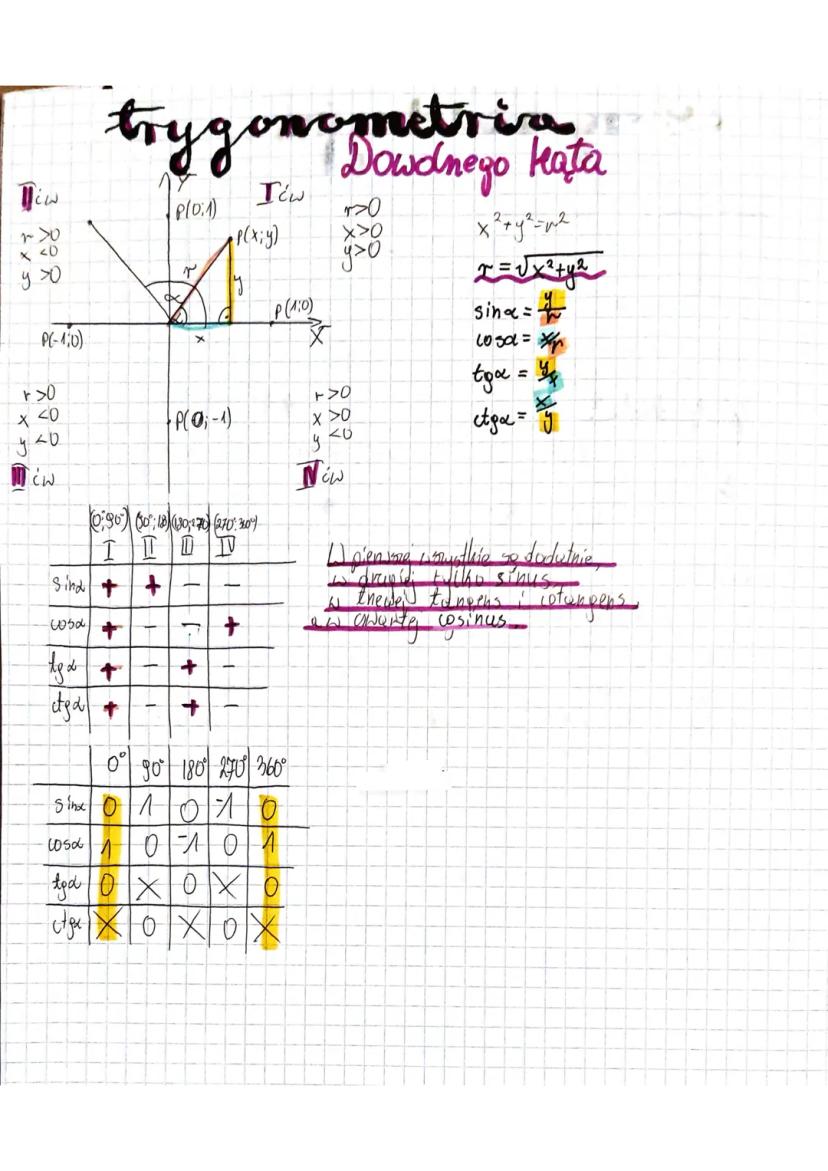 trygonometria
Dowolnego kąta
II ćw
r>0
x<0
y>0
Y
P(0;1)
I ćw
P(x;y)
r>0
x>0
y>0
r
y
α
x
P(1;0)
X
P(-1;0)
P(0;-1)
r>0
x<0
y<0
III ćw
r>0
x>0
y<0
IV ćw
x²+y²=r²
r=√x²+y²
sinα = y/r
cosα = x/r
tgα = y/x
ctgα = x/y
(0°;90°) (90°;180) (180;270) (270°;360°)
I II III IV
sinα + + - -
cosα + - - +
tgα + - + -
ctgα + - + -
W pierwszej wszystkie są dodatnie,
w drugiej tylko sinus,
w trzeciej tangens i cotangens,
a w czwartej cosinus.
0° 90° 180° 270° 360°
sinα 0 1 0 -1 0
cosα 1 0 -1 0 1
tgα 0 X 0 X 0
ctgα X 0 X 0 X